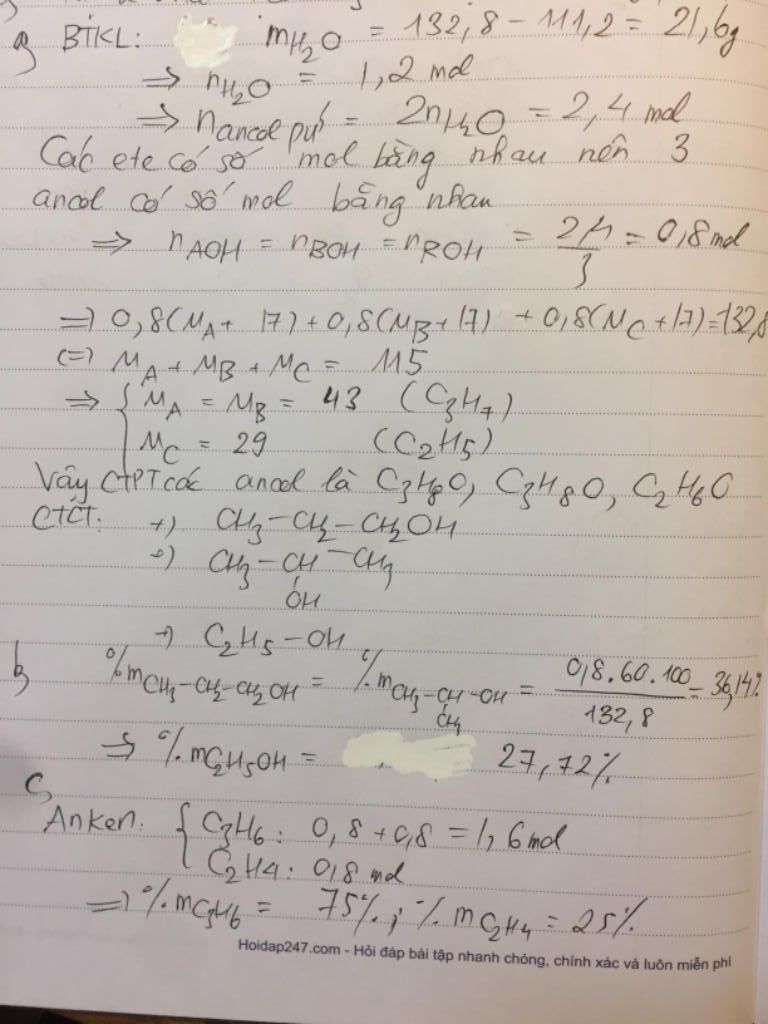 a, BTKL: mH2O = 132,8 - 111,2 = 21,6g
=> nH2O = 1,2 mol
=> n ancol pứ = 2nH2O = 2,4 mol
Các ete có số mol bằng nhau nên 3
ancol có số mol bằng nhau
=> nAOH = nBOH = nROH = 2,4/3 = 0,8 mol
=> 0,8(MA + 17) + 0,8(MB + 17) + 0,8(MC + 17) = 132,8
(=) MA + MB + MC = 115
=> { MA = MB = 43 (C3H7)
MC = 29 (C2H5)
Vậy CTPT các ancol là C3H8O, C3H8O, C2H6O
CTCT: +) CH3 - CH2 - CH2OH
+) CH3 - CH - CH3
OH
+) C2H5 - OH
b, %mCH3-CH2-CH2OH = %mCH3-CH-OH = 0,8.60.100/132,8 = 36,14%
CH3
=> %mC2H5OH = 27,72%
c,
Anken: { C3H6: 0,8 + 0,8 = 1,6 mol
C2H4: 0,8 mol
=> %mC3H6 = 75%; %mC2H4 = 25%
Hoidap247.com - Hỏi đáp bài tập nhanh chóng, chính xác và luôn miễn phí